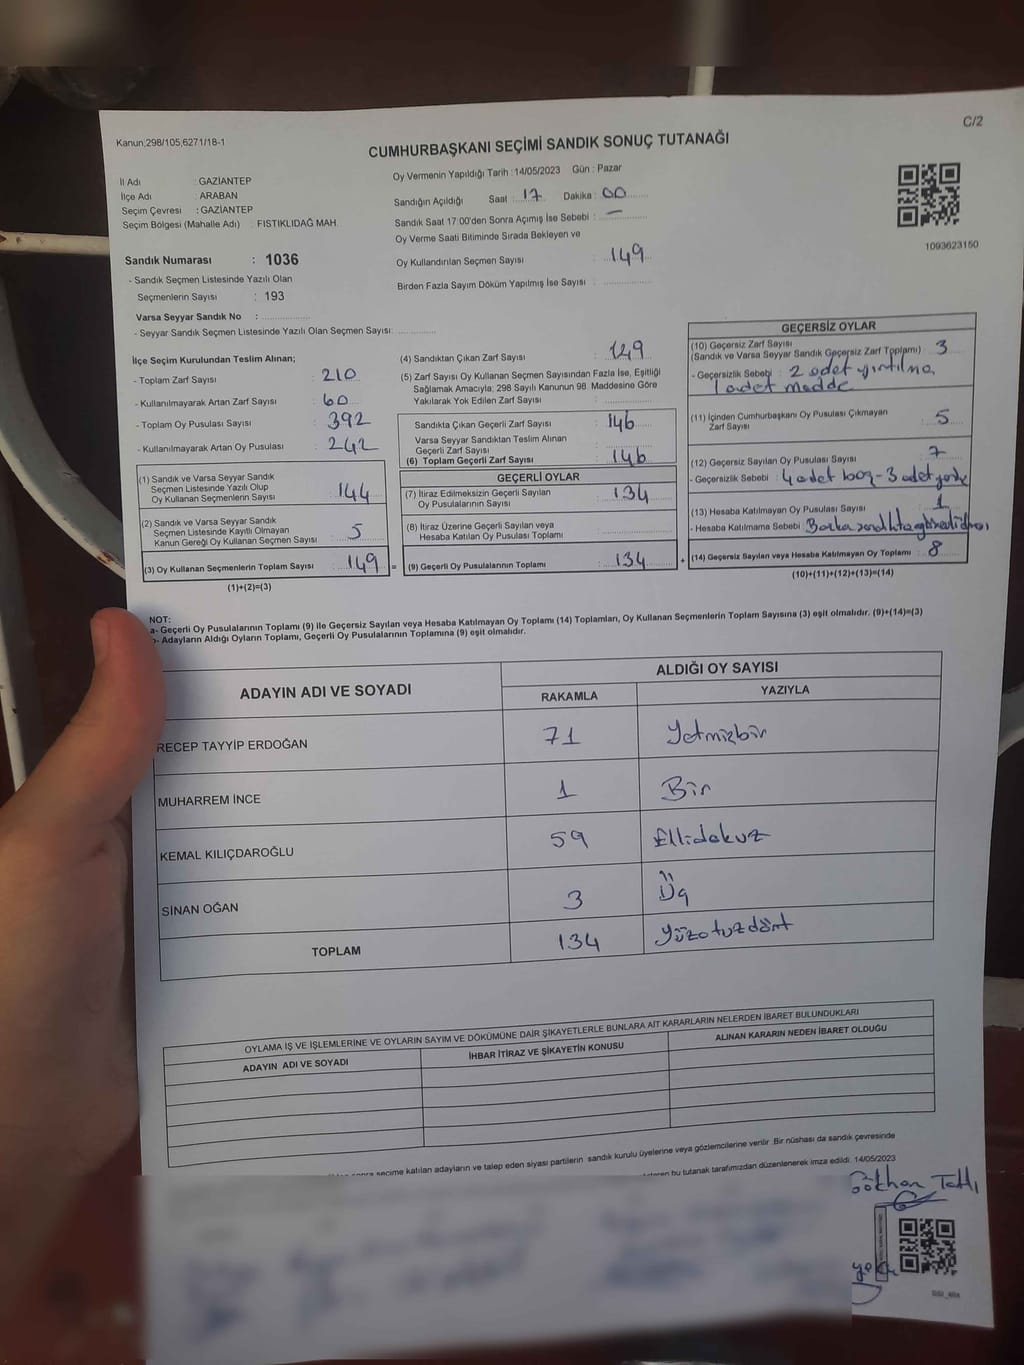 Kanun;298/105,6271/18-1
C/2
CUMHURBAŞKANI SEÇİMİ SANDIK SONUÇ TUTANAĞI
İl Adı : GAZİANTEP
İlçe Adı : ARABAN
Seçim Çevresi : GAZİANTEP
Seçim Bölgesi (Mahalle Adı) : FISTIKLIDAĞ MAH.
Oy Vermenin Yapıldığı Tarih :14/05/2023 Gün : Pazar
Sandığın Açıldığı Saat : 17 Dakika : 00
Sandık Saat 17:00'den Sonra Açımış İse Sebebi : -
Oy Verme Saati Bitiminde Sırada Bekleyen ve
Oy Kullandırılan Seçmen Sayısı : 149
Birden Fazla Sayım Döküm Yapılmış İse Sayısı :
1093623150
Sandık Numarası : 1036
- Sandık Seçmen Listesinde Yazılı Olan
Seçmenlerin Sayısı : 193
Varsa Seyyar Sandık No :
- Seyyar Sandık Seçmen Listesinde Yazılı Olan Seçmen Sayısı:
İlçe Seçim Kurulundan Teslim Alınan;
- Toplam Zarf Sayısı : 210
- Kullanılmayarak Artan Zarf Sayısı : 60
- Toplam Oy Pusulası Sayısı : 392
- Kullanılmayarak Artan Oy Pusulası : 242
(1) Sandık ve Varsa Seyyar Sandık
Seçmen Listesinde Yazılı Olup
Oy Kullanan Seçmenlerin Sayısı : 144
(2) Sandık ve Varsa Seyyar Sandık
Seçmen Listesinde Kayıtlı Olmayan
Kanun Gereği Oy Kullanan Seçmen Sayısı : 5
(3) Oy Kullanan Seçmenlerin Toplam Sayısı : 149 =
(1)+(2)=(3)
(4) Sandıktan Çıkan Zarf Sayısı : 149
(5) Zarf Sayısı Oy Kullanan Seçmen Sayısından Fazla İse, Eşitliği
Sağlamak Amacıyla; 298 Sayılı Kanunun 98. Maddesine Göre
Yakılarak Yok Edilen Zarf Sayısı :
Sandıkta Çıkan Geçerli Zarf Sayısı : 146
Varsa Seyyar Sandıktan Teslim Alınan
Geçerli Zarf Sayısı :
(6) Toplam Geçerli Zarf Sayısı : 146
GEÇERLİ OYLAR
(7) İtiraz Edilmeksizin Geçerli Sayılan
Oy Pusulalarının Sayısı : 134
(8) İtiraz Üzerine Geçerli Sayılan veya
Hesaba Katılan Oy Pusulası Toplamı :
(9) Geçerli Oy Pusulalarının Toplamı : 134 +
GEÇERSİZ OYLAR
(10) Geçersiz Zarf Sayısı
(Sandık ve Varsa Seyyar Sandık Geçersiz Zarf Toplamı) : 3
- Geçersizlik Sebebi : 2 adet yırtılma,
1 adet madde
(11) İçinden Cumhurbaşkanı Oy Pusulası Çıkmayan
Zarf Sayısı : 5
(12) Geçersiz Sayılan Oy Pusulası Sayısı : 7
- Geçersizlik Sebebi : 4 adet boş - 3 adet
(13) Hesaba Katılmayan Oy Pusulası Sayısı : 1
- Hesaba Katılmama Sebebi : Başka
(14) Geçersiz Sayılan veya Hesaba Katılmayan Oy Toplamı : 8
(10)+(11)+(12)+(13)=(14)
NOT:
a- Geçerli Oy Pusulalarının Toplamı (9) ile Geçersiz Sayılan veya Hesaba Katılmayan Oy Toplamı (14) Toplamları, Oy Kullanan Seçmenlerin Toplam Sayısına (3) eşit olmalıdır. (9)+(14)=(3)
b- Adayların Aldığı Oyların Toplamı, Geçerli Oy Pusulalarının Toplamına (9) eşit olmalıdır.
ADAYIN ADI VE SOYADI
ALDIĞI OY SAYISI
RAKAMLA YAZIYLA
RECEP TAYYİP ERDOĞAN 71 Yetmişbir
MUHARREM İNCE 1 Bir
KEMAL KILIÇDAROĞLU 59 Ellidokuz
SİNAN OĞAN 3 Üç
TOPLAM 134 Yüzotuzdört
OYLAMA İŞ VE İŞLEMLERİNE VE OYLARIN SAYIM VE DÖKÜMÜNE DAİR ŞİKAYETLERLE BUNLARA AİT KARARLARIN NELERDEN İBARET BULUNDUKLARI
ADAYIN ADI VE SOYADI İHBAR İTİRAZ VE ŞİKAYETİN KONUSU ALINAN KARARIN NEDEN İBARET OLDUĞU
sonra seçime katılan adayların ve talep eden siyasi partilerin sandık kurulu üyelerine veya gözlemcilerine verilir. Bir nüshası da sandık çevresinde
bu tutanak tarafımızdan düzenlenerek imza edildi. 14/05/2023
Gökhan Tatlı